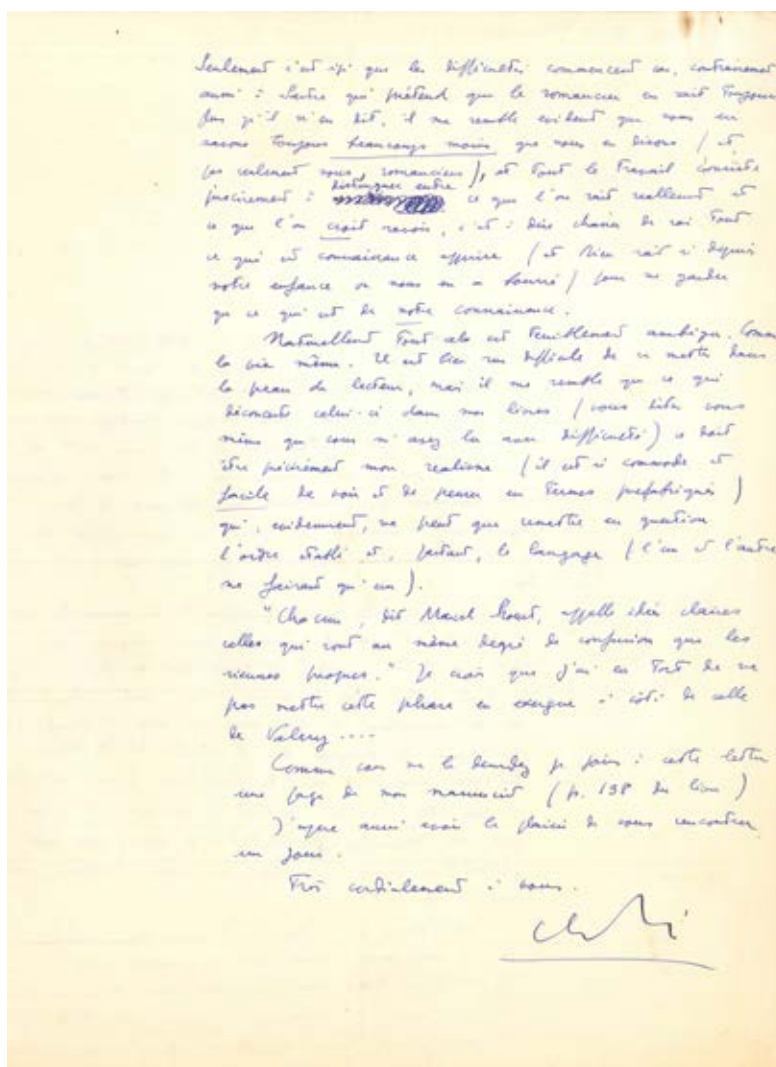 Seulement c'est ici que les difficultés commencent car, contrairement
aussi à Sartre qui prétend que le romancier en sait toujours
plus qu'il n'en dit, il me semble évident que nous en
savons toujours beaucoup moins que nous en disons (et
pas seulement nous, romanciers), et tout le travail consiste
précisément à distinguer entre ce que l'on sait réellement et
ce que l'on croit savoir, c'est à dire chasser de soi tout
ce qui est connaissance apprise (et Dieu sait si depuis
notre enfance on nous en a bourré) pour ne garder
que ce qui est de notre connaissance.
Naturellement tout cela est terriblement ambigu. Comme
la vie même. Il est bien sûr difficile de se mettre dans
la peau du lecteur, mais il me semble que ce qui
déconcerte celui-ci dans nos livres (vous dites vous
même que vous m'avez lu avec difficulté) ce doit
être précisément mon réalisme (il est si commode et
facile de voir et de penser en termes préfabriqués)
qui, évidemment, ne peut que remettre en question
l'ordre établi et, partant, le langage (l'un et l'autre
ne faisant qu'un).
"Chacun, dit Marcel Proust, appelle idées claires
celles qui sont au même degré de confusion que les
siennes propres." Je crois que j'ai eu tort de ne
pas mettre cette phrase en exergue à côté de celle
de Valery ....
Comme vous me le demandez je joins à cette lettre
une page de mon manuscrit (p. 138 du livre)
J'espère aussi avoir le plaisir de vous rencontrer
un jour.
Très cordialement à vous.